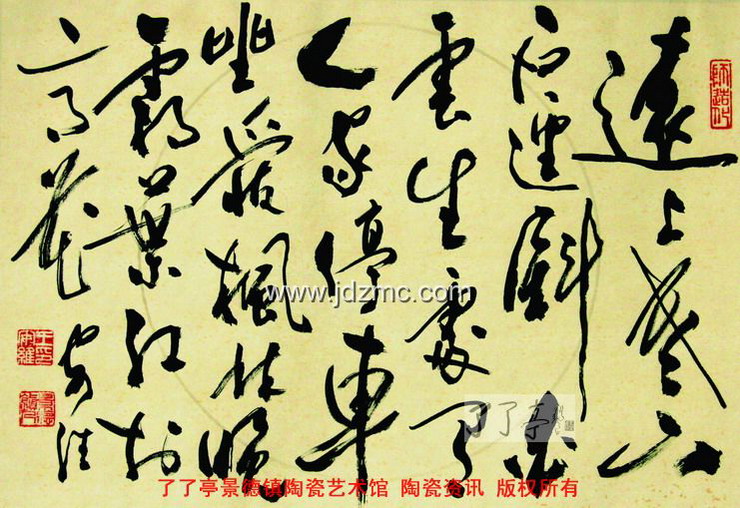 遠上寒山
石逕斜白
雲生處有
人家停車
坐愛楓林晚
霜葉紅於
二月花
www.jdzmc.com
了了亭
了了亭景德镇陶瓷艺术馆 陶瓷资讯 版权所有